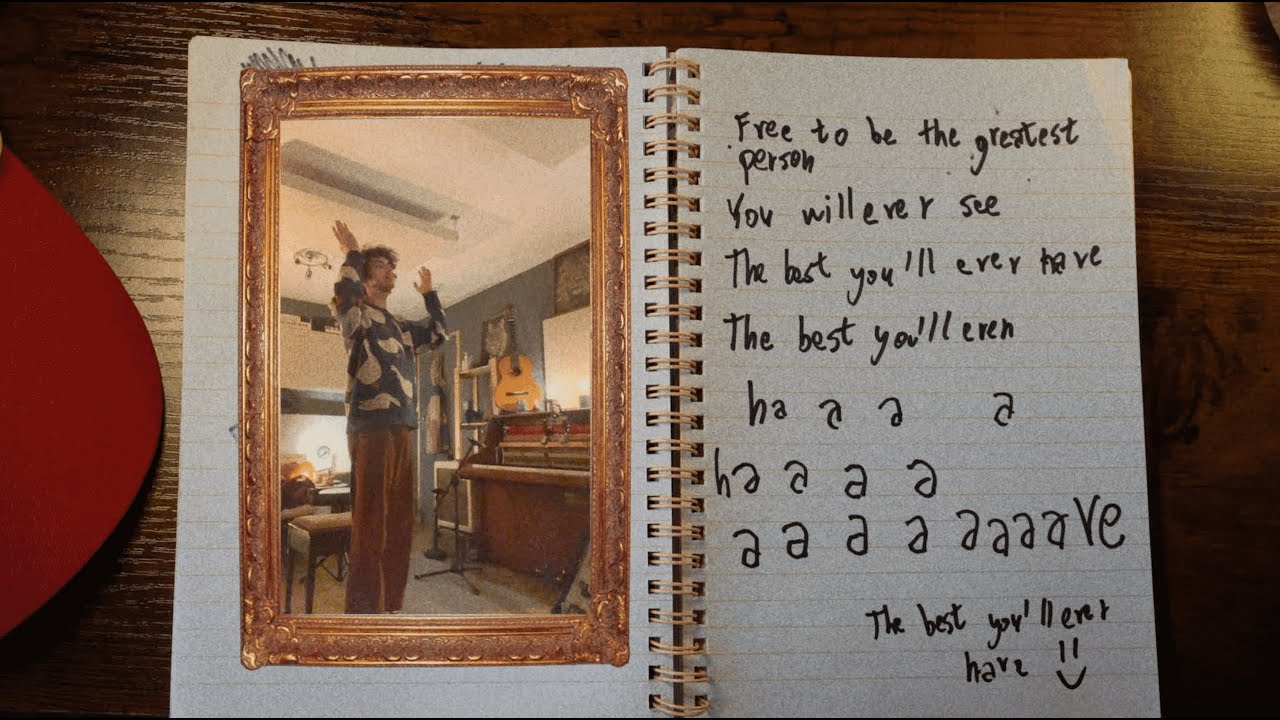 Free to be the greatest
person
You will ever see
The best you'll ever have
The best you'll ever
ha a a a
ha a a a
a a a a aaaave
The best you'll ever
have